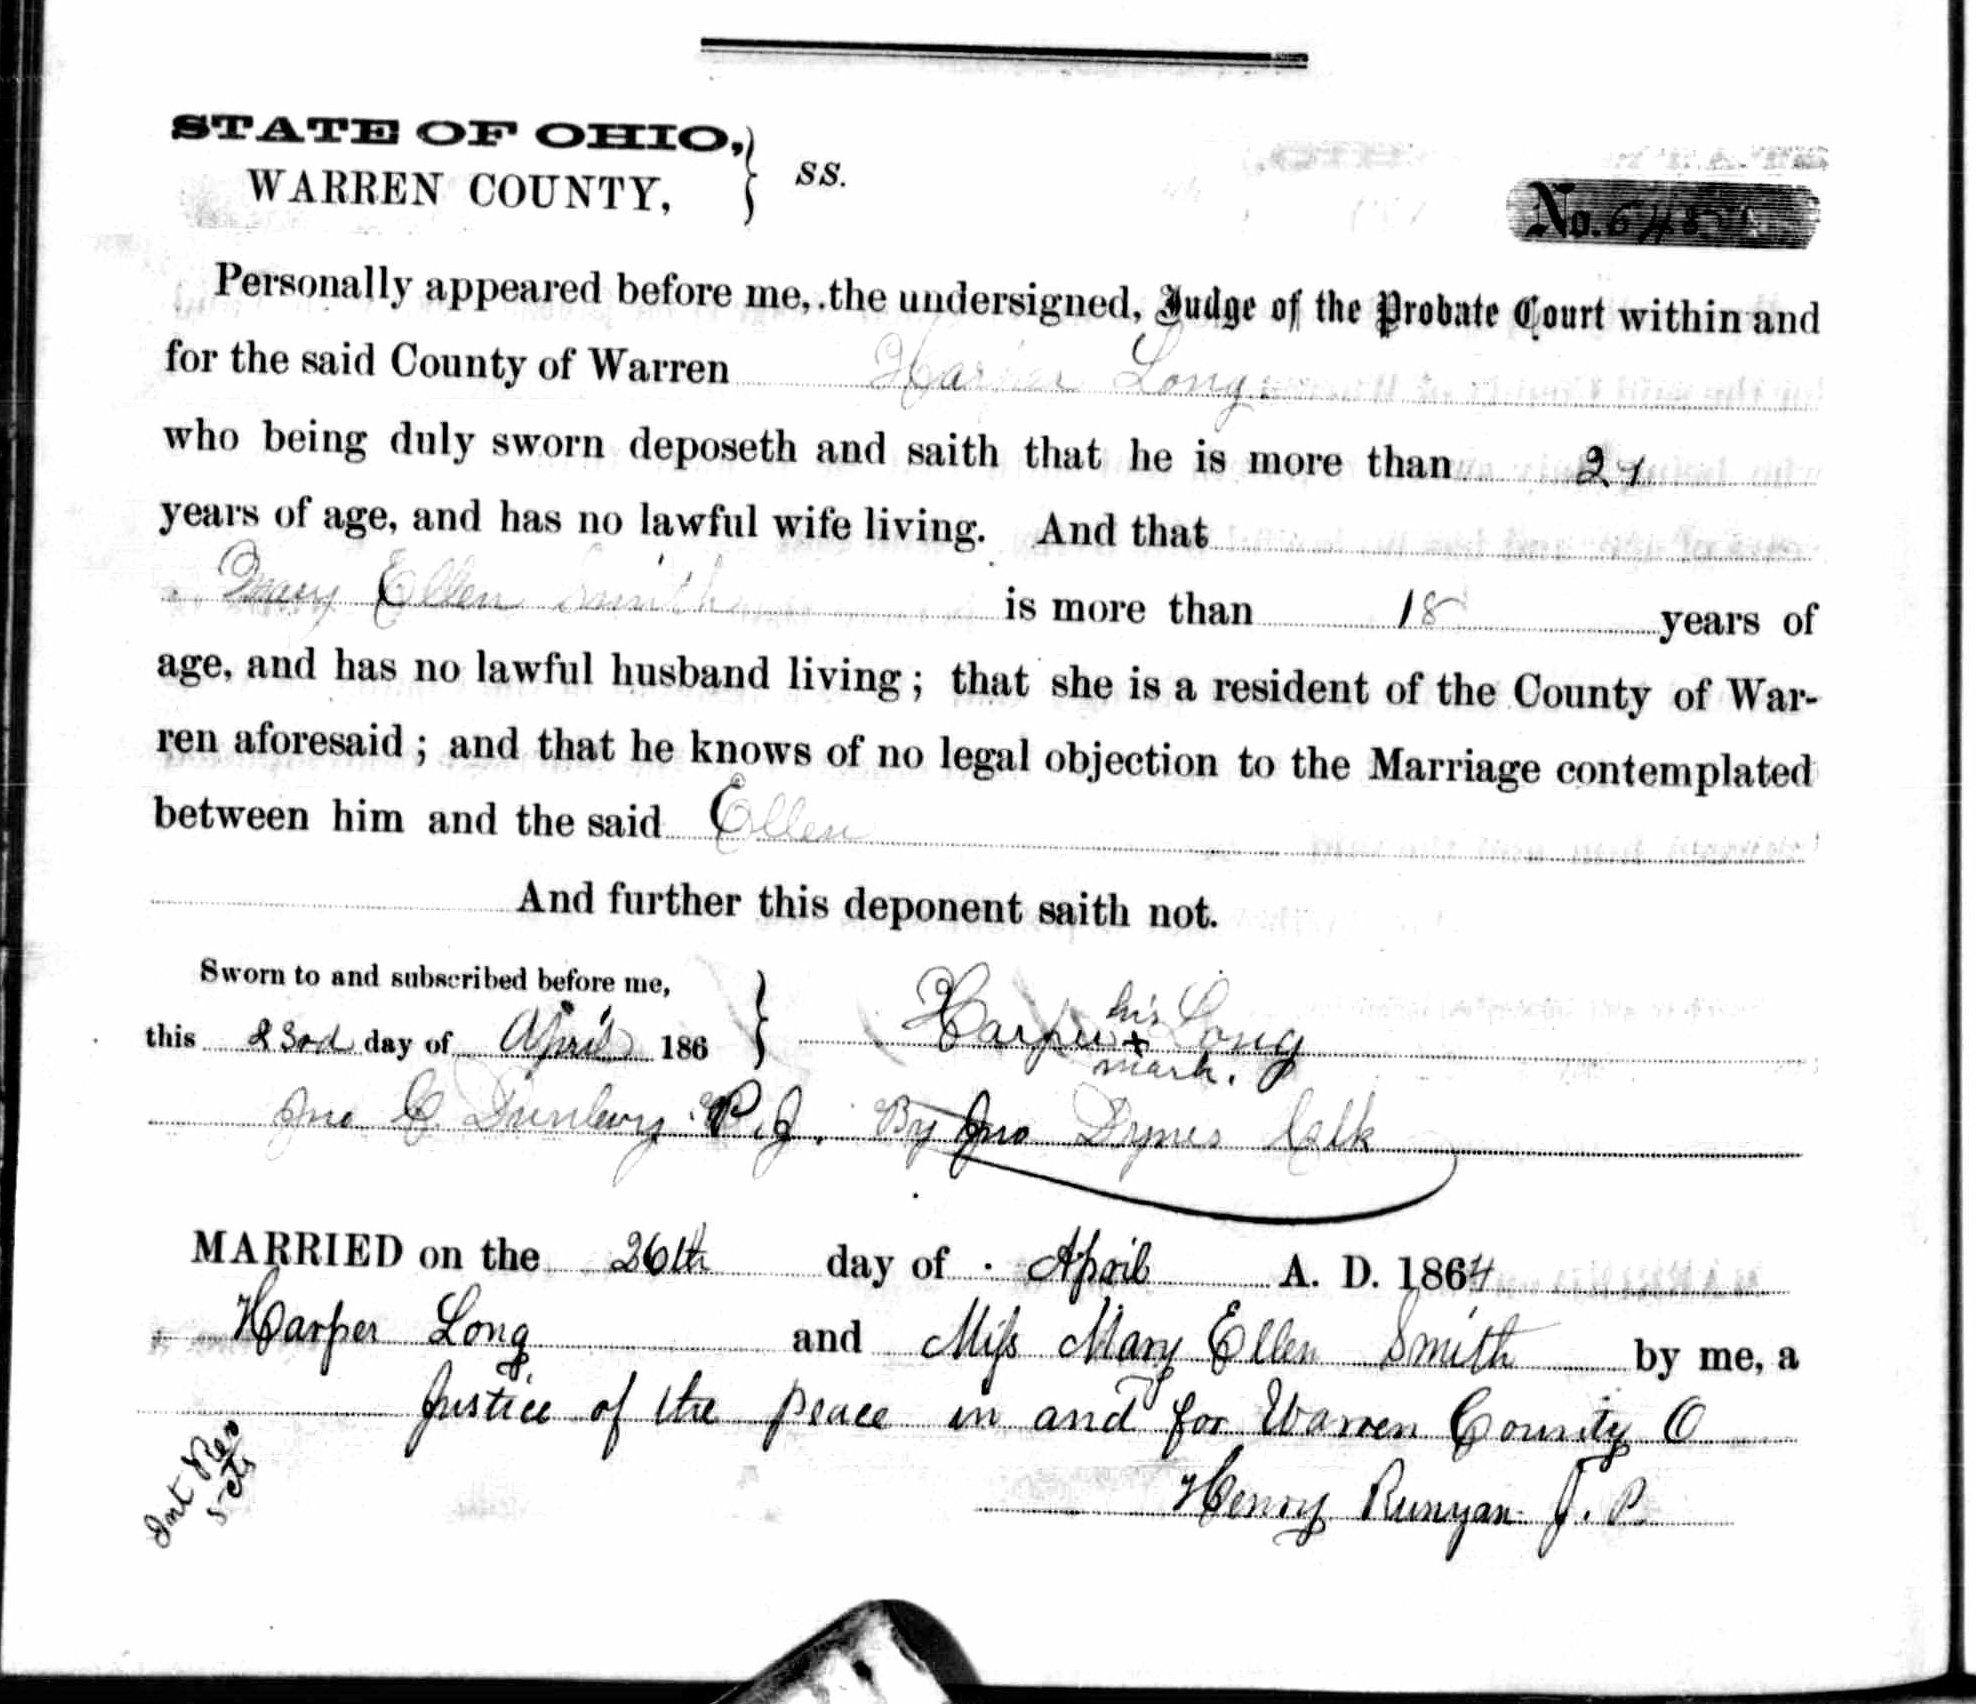 STATE OF OHIO,
WARREN COUNTY, } ss.
No.
Personally appeared before me, the undersigned, Judge of the Probate Court within and
for the said County of Warren Harper Long
who being duly sworn deposeth and saith that he is more than 21
years of age, and has no lawful wife living. And that
Mary Ellen Smith is more than 18 years of
age, and has no lawful husband living; that she is a resident of the County of War-
ren aforesaid; and that he knows of no legal objection to the Marriage contemplated
between him and the said Ellen
And further this deponent saith not.
Sworn to and subscribed before me,
this 23rd day of April 186 } Harper his + mark. Long
Jno C. Dunlevy P. J. By Jno Dynes Clk
MARRIED on the 26th day of April A. D. 1864
Harper Long and Miss Mary Ellen Smith by me, a
Justice of the peace in and for Warren County O
Henry Runyan J. P.
Int Rev
5 cts